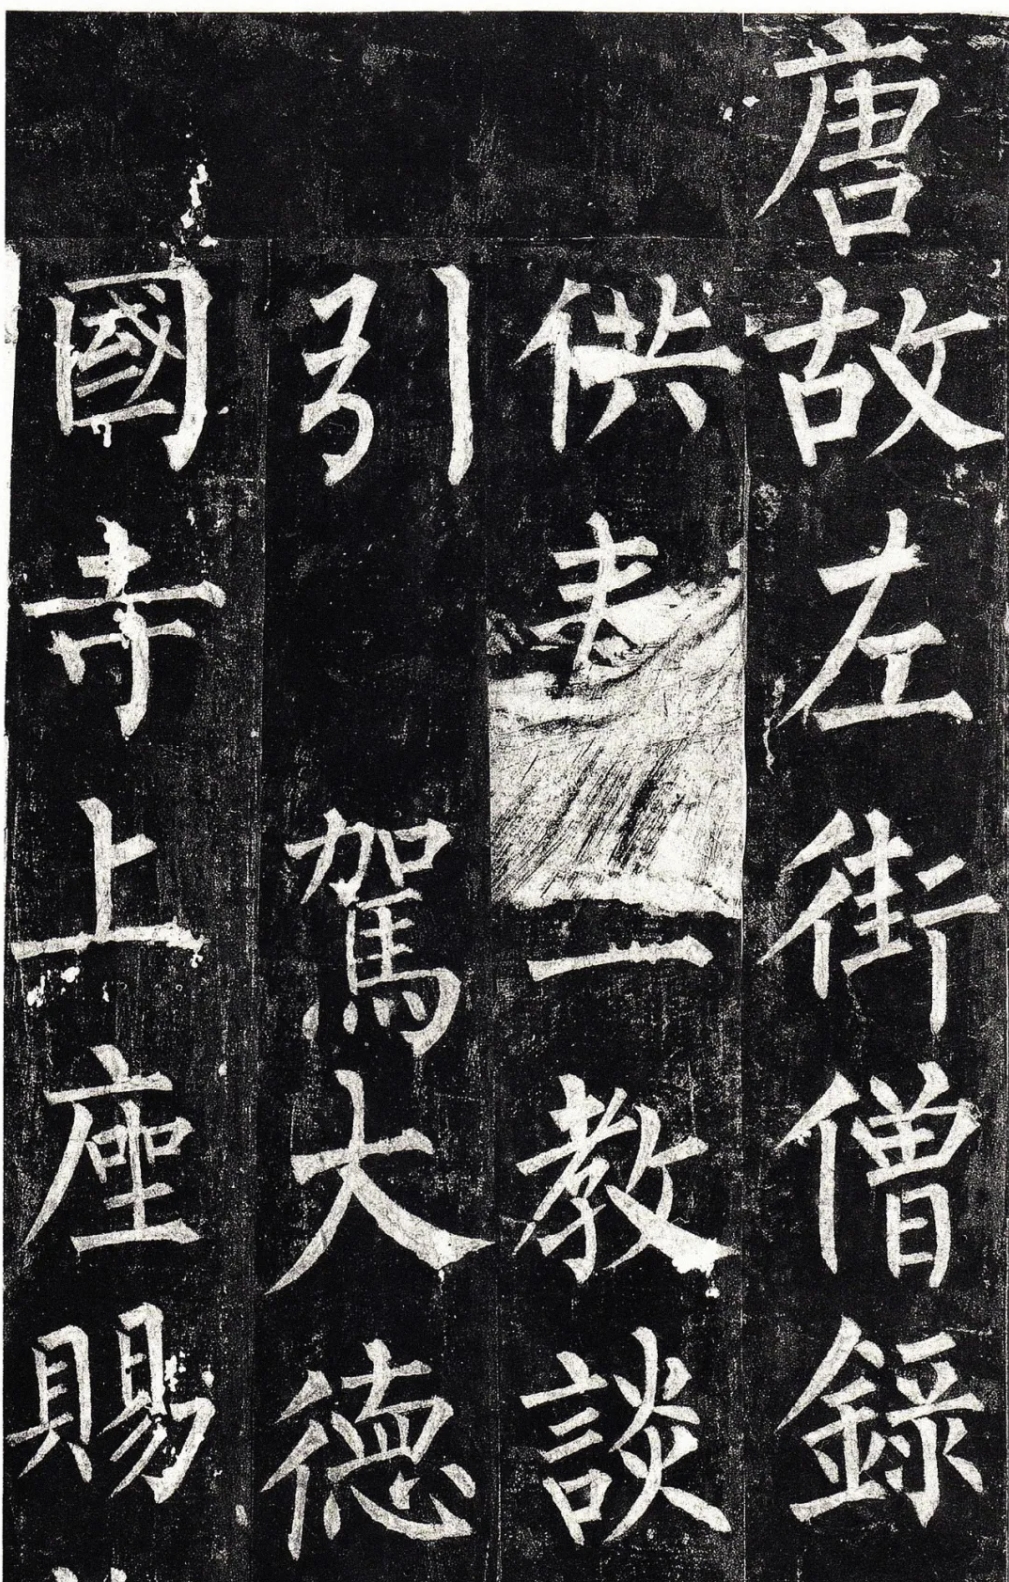 唐故左街僧錄
供奉一教談
引駕大德
國寺上座賜